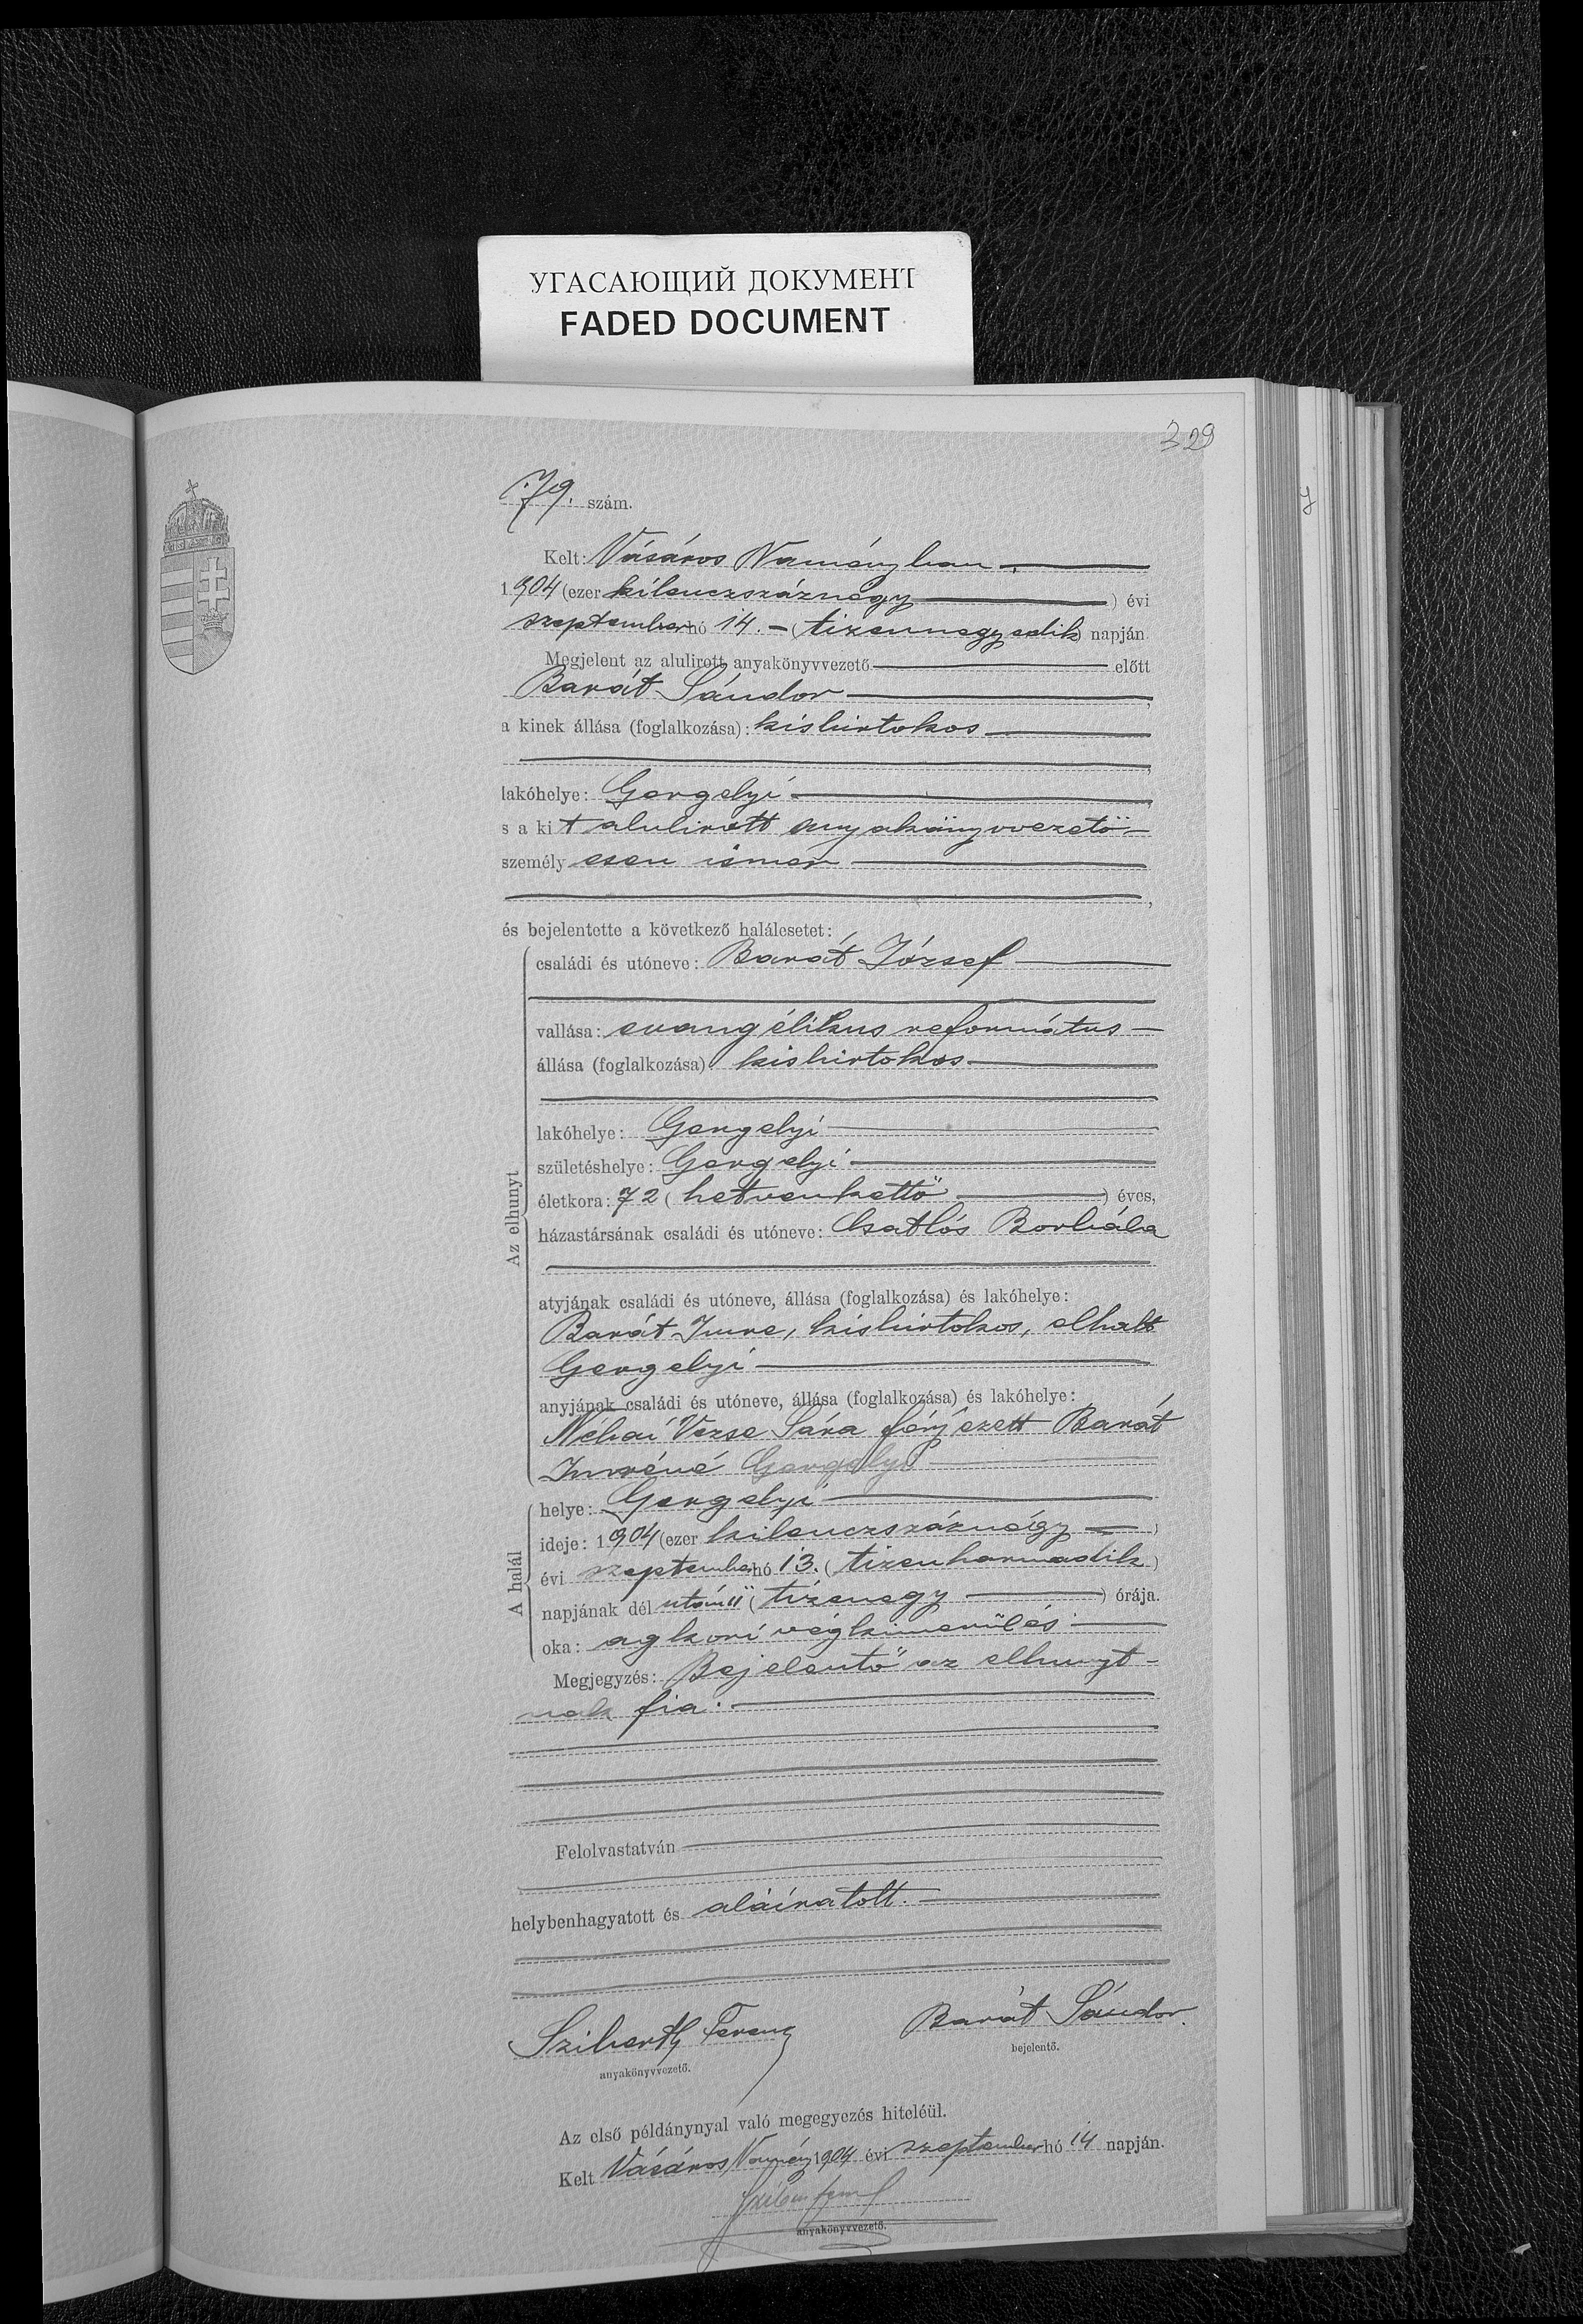 УГАСАЮЩИЙ ДОКУМЕНТ
FADED DOCUMENT
329
79. szám.
Kelt: Vásáros Naményban,
1904 (ezer kilenczszáznégy) évi
szeptember hó 14. - (tizennegyedik) napján
Megjelent az alulirott anyakönyvvezető előtt
Barát Sándor,
a kinek állása (foglalkozása): kisbirtokos
,
lakóhelye: Gergelyi,
s a kit alulirott anyakönyvvezető
személyesen ismer
,
és bejelentette a következő halálesetet:
Az elhunyt
családi és utóneve: Barát József
vallása: evangélikus református
állása (foglalkozása) kisbirtokos
lakóhelye: Gergelyi
születéshelye: Gergelyi
életkora: 72 (hetvenkettő) éves,
házastársának családi és utóneve: Csatlós Borbála
atyjának családi és utóneve, állása (foglalkozása) és lakóhelye:
Barát Imre, kisbirtokos, elhalt
Gergelyi
anyjának családi és utóneve, állása (foglalkozása) és lakóhelye:
Néhai Vezse Sára férjezett Barát
Imréné Gergelyi
A halál
helye: Gergelyi
ideje: 1904 (ezer kilenczszáznégy)
évi szeptember hó 13. (tizenharmadik)
napjának dél utáni 11 (tizenegy) órája.
oka: agkori végkimerülés
Megjegyzés: Bejelentő az elhunyt-
nak fia.
Felolvastatván
helybenhagyatott és aláiratott.
Sziberth Ferencz
Barát Sándor.
anyakönyvvezető.
bejelentő.
Az első példánynyal való megegyezés hiteléül.
Kelt Vásáros Namény 1904 évi szeptember hó 14 napján.
anyakönyvvezető.